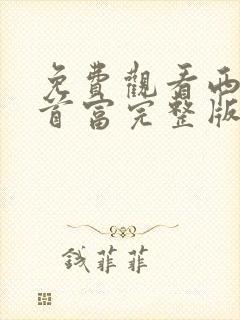 免費觀看西
首富完整版
钱菲菲